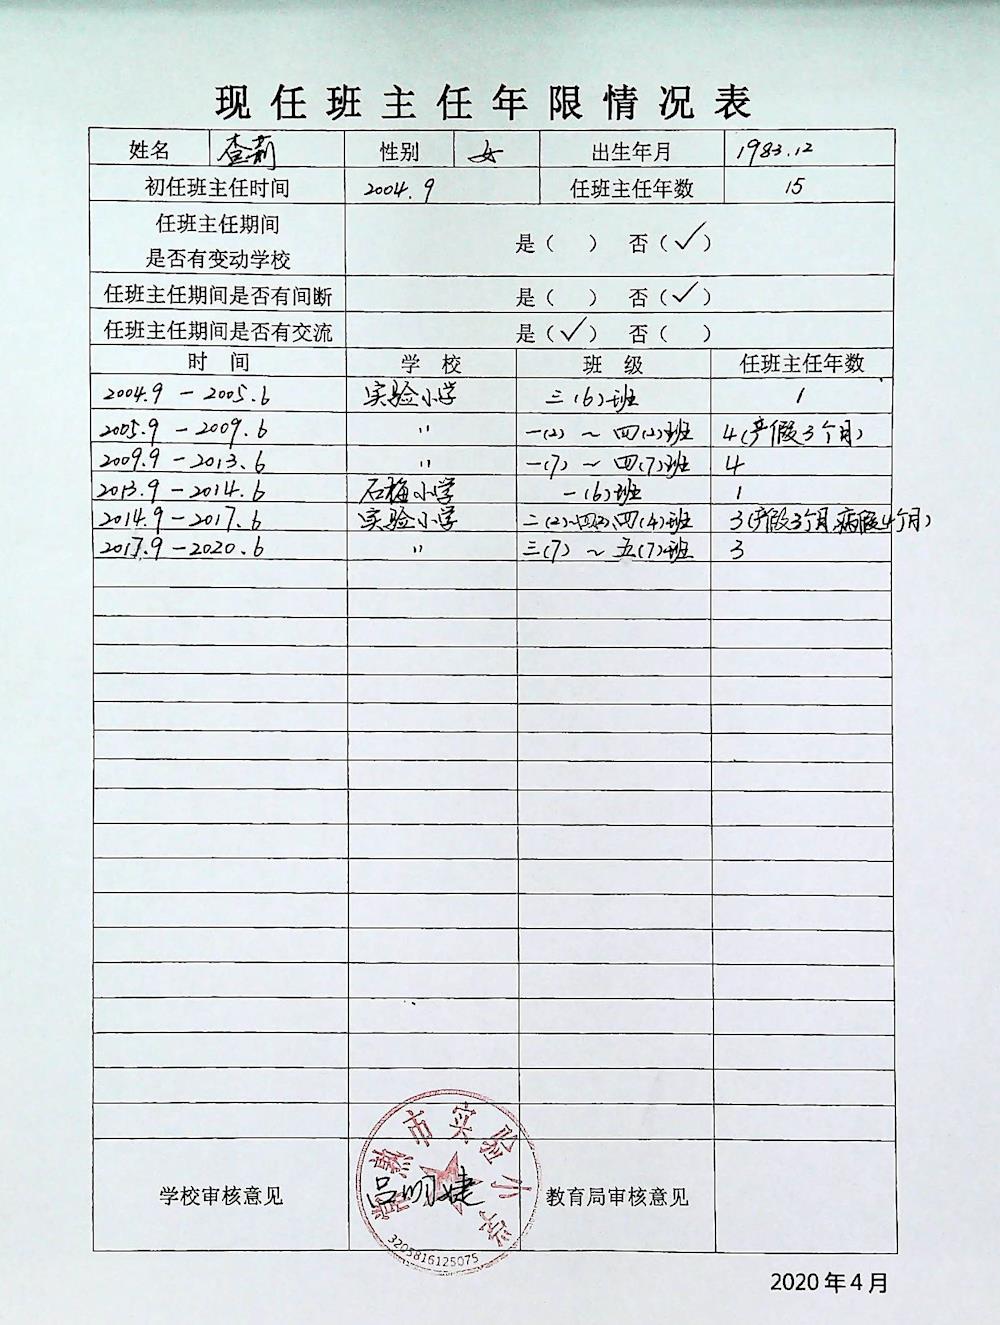 现任班主任年限情况表
姓名 查莉 性别 女 出生年月 1983.12
初任班主任时间 2004.9 任班主任年数 15
任班主任期间
是否有变动学校 是（ ） 否（✓）
任班主任期间是否有间断 是（ ） 否（✓）
任班主任期间是否有交流 是（✓） 否（ ）
时 间 学 校 班 级 任班主任年数
2004.9 - 2005.6 实验小学 三(6)班 1
2005.9 - 2009.6 〃 一(2) ~ 四(2)班 4(产假3个月)
2009.9 - 2013.6 〃 一(7) ~ 四(7)班 4
2013.9 - 2014.6 石梅小学 一(6)班 1
2014.9 - 2017.6 实验小学 二(2)~四(2)、四(4)班 3(产假3个月 病假4个月)
2017.9 - 2020.6 〃 三(7) ~ 五(7)班 3
常熟市实验小学
学校审核意见 教育局审核意见
3205816125075
2020年4月